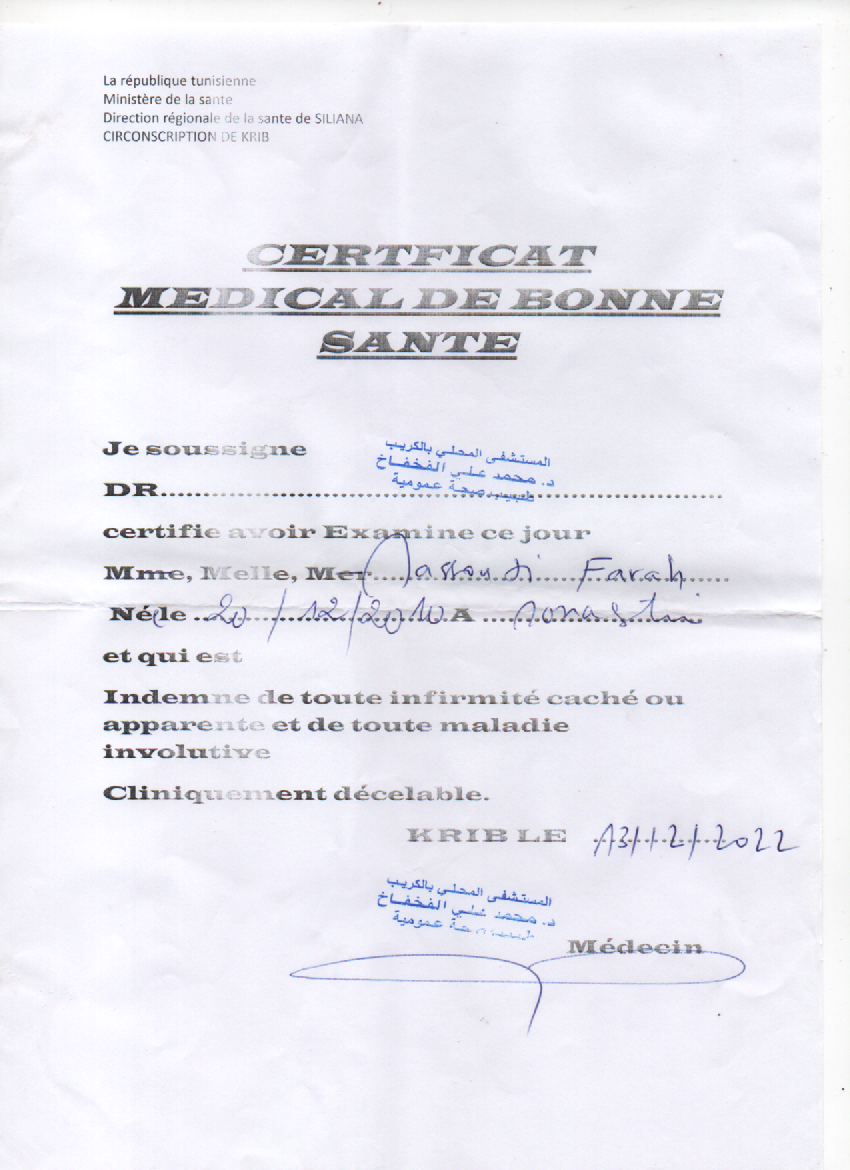 La république tunisienne
Ministère de la sante
Direction régionale de la sante de SILIANA
CIRCONSCRIPTION DE KRIB
CERTFICAT
MEDICAL DE BONNE
SANTE
Je soussigne
المستشفى المحلي بالكريب
د. محمد علي الفخفاخ
طبيب صحة عمومية
DR..........................................................
certifie avoir Examine ce jour
Mme, Melle, Mer.... Farah ......
Née le .. 20/12/2010 A ....
et qui est
Indemne de toute infirmité caché ou
apparente et de toute maladie
involutive
Cliniquement décelable.
KRIB LE 13/12/2022
المستشفى المحلي بالكريب
د. محمد علي الفخفاخ
طبيب صحة عمومية
Médecin